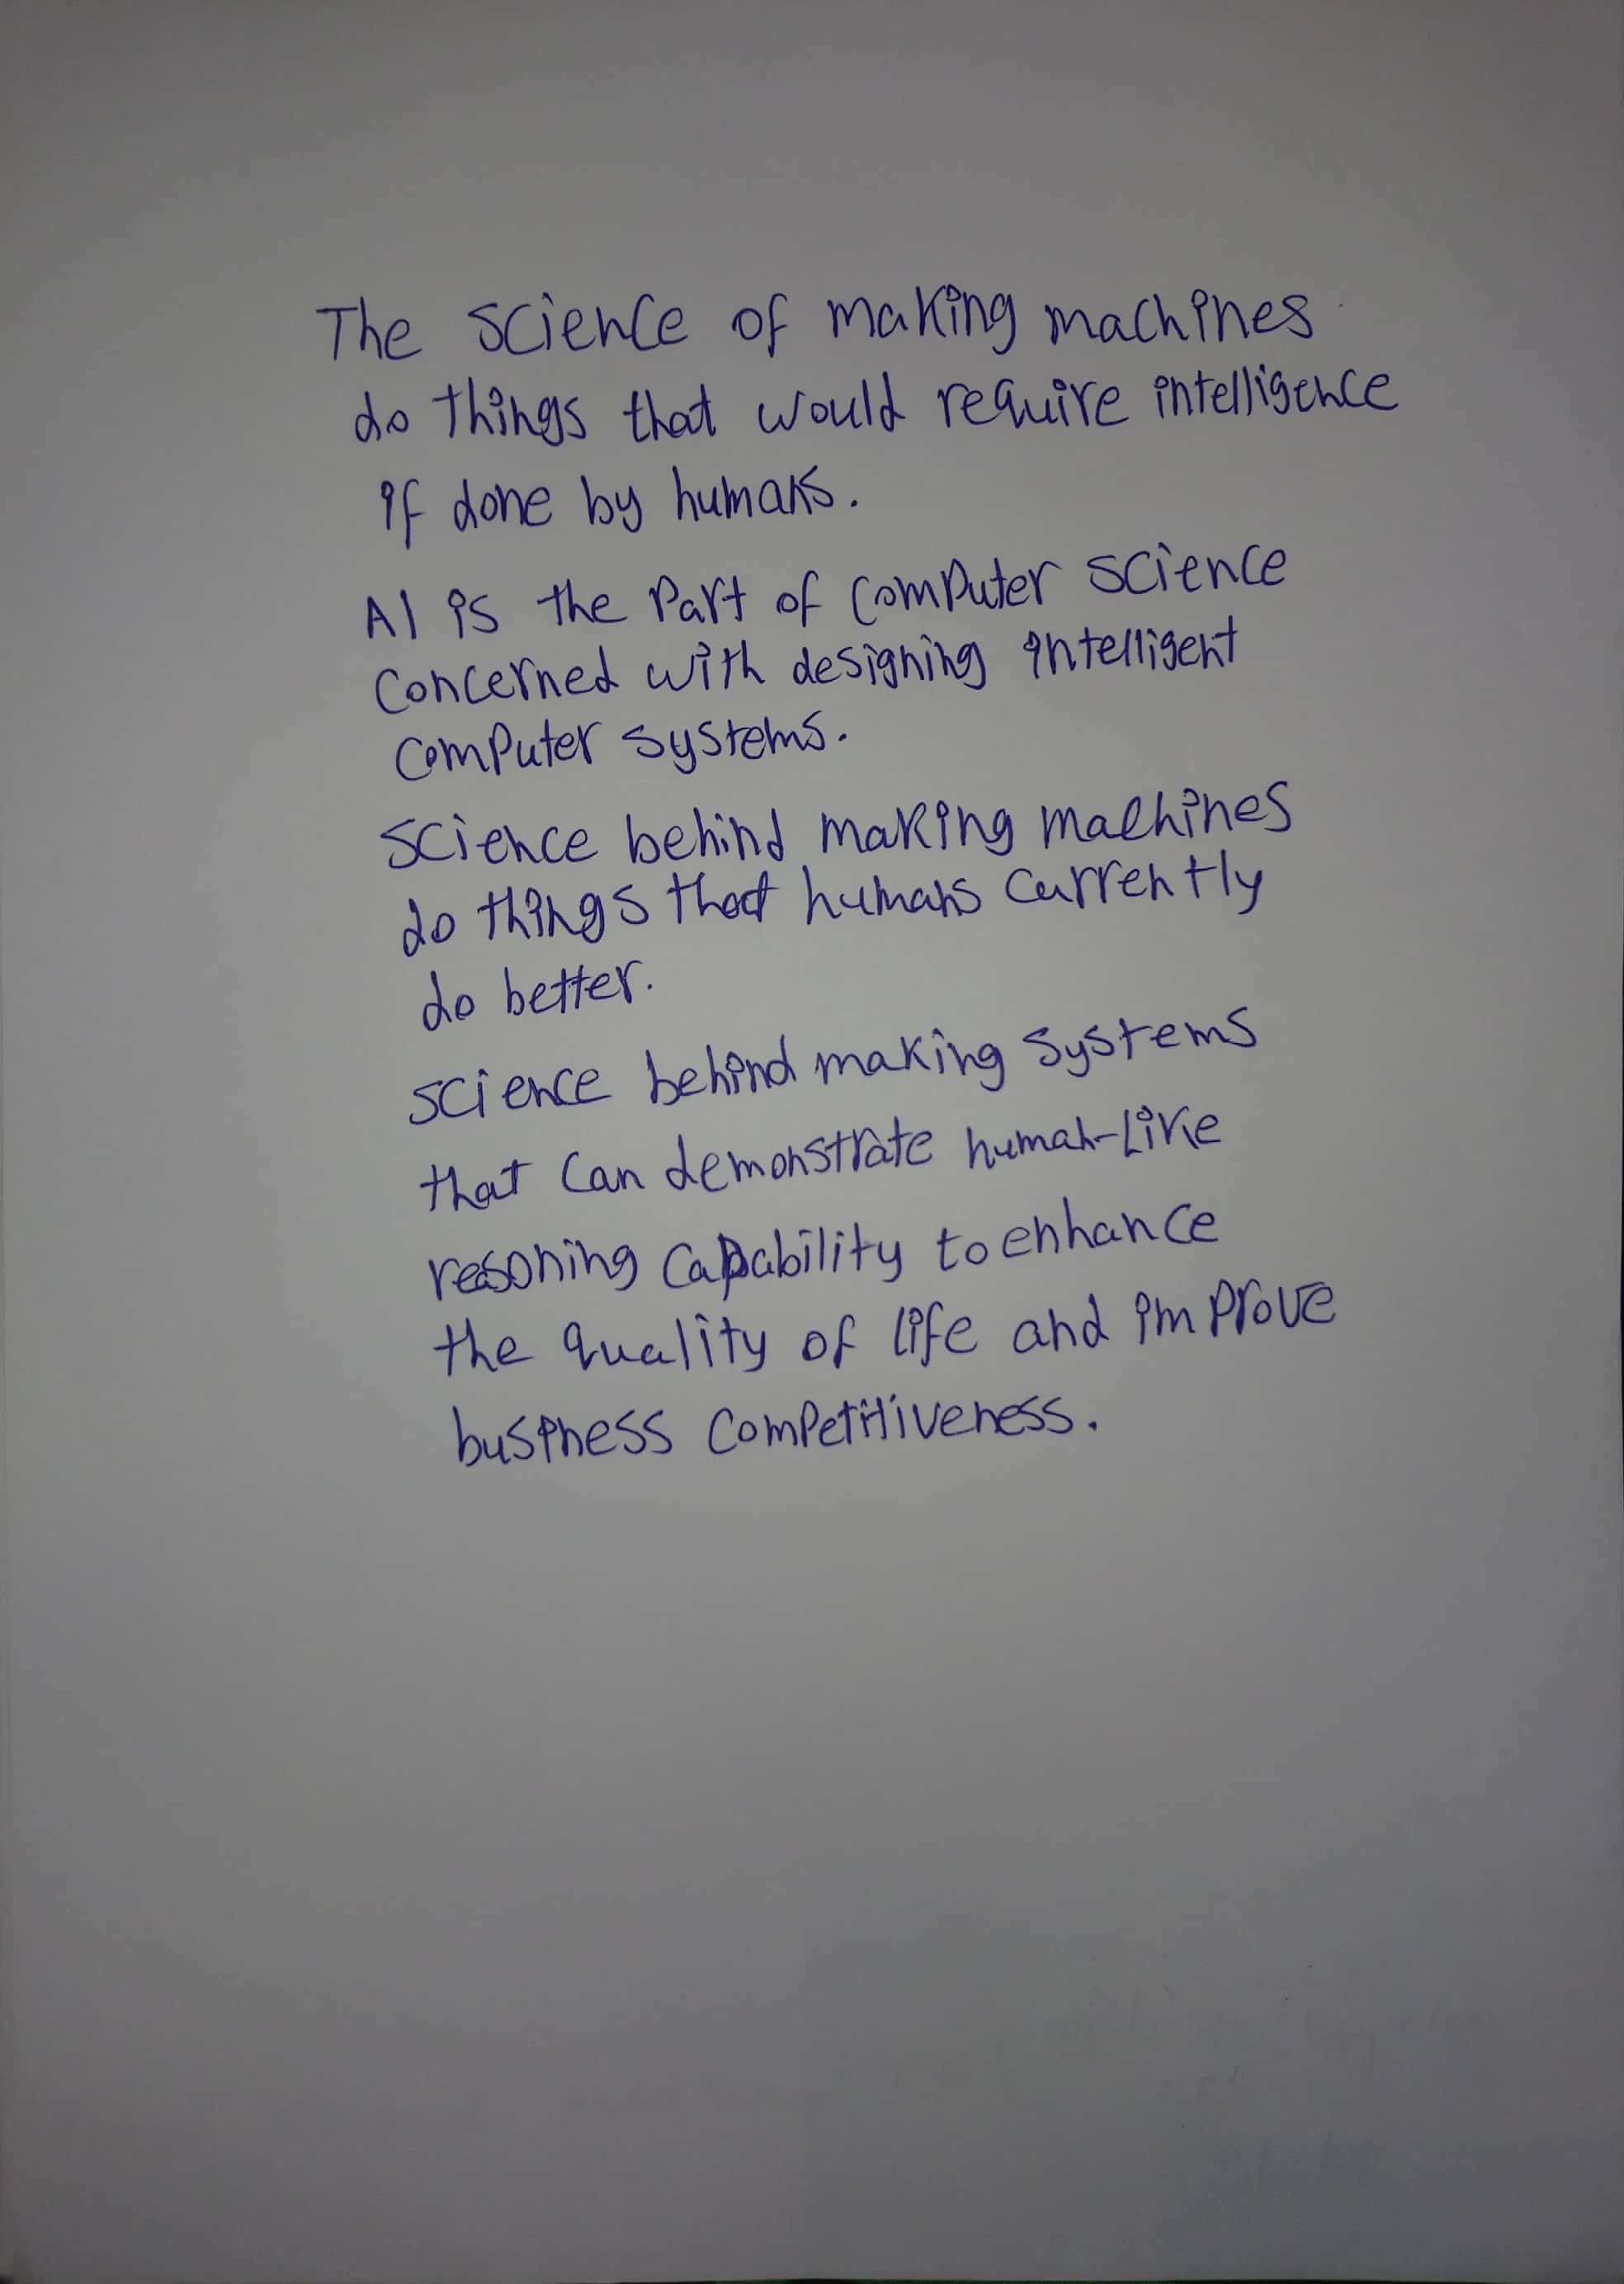 The science of making machines
do things that would require intelligence
if done by humans.
AI is the Part of computer science
concerned with designing intelligent
computer systems.
science behind making machines
do things that humans currently
do better.
science behind making systems
that can demonstrate human-Like
resoning capability to enhance
the quality of life and improve
business competitiveness.